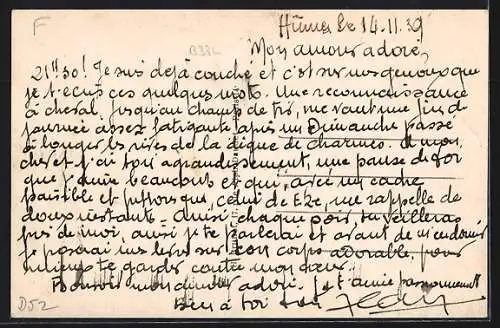 F
B332
le 14.11.39
Mon amour adoré,
21h30! Je suis déjà couché et c'est sur mes genoux que
je t'écris ces quelques mots. Une reconnaissance
à cheval jusqu'au champ de tir, me vaut une fin de
journée assez fatigante après un Dimanche passé
à longer les rives de la digue de charmes. A mon
chevet j'ai ton agrandissement, une pause de toi
que j'aime beaucoup et qui, avec un cadre
paisible et que, celui de me rappelle de
doux instants. Ainsi chaque soir tu veilleras
près de moi, ainsi je te parlerai et avant de m'endormir
je poserai mes lèvres sur ton corps adorable, pour
mieux te garder contre mon cœur.
Bonsoir mon amour adoré. Je t'aime passionnément
Bien à toi ton
D52